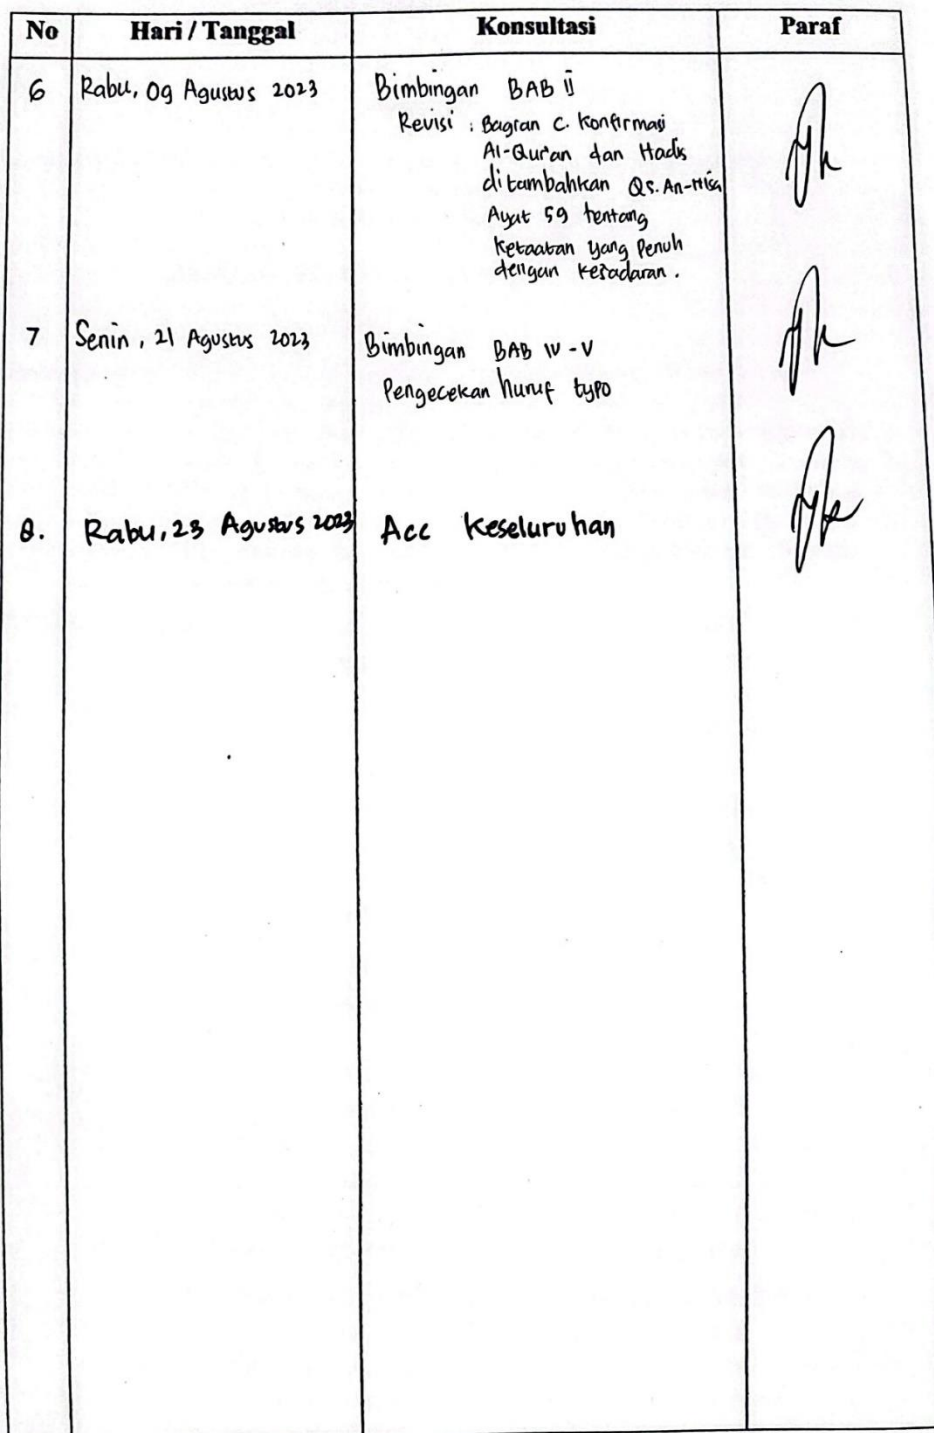 No Hari / Tanggal Konsultasi Paraf
6 Rabu, 09 Agustus 2023 Bimbingan BAB ii
Revisi : Bagian C. Konfirmasi
Al-Qur'an dan Hadis
ditambahkan Qs. An-Nisa
Ayat 59 tentang
Ketaatan yang Penuh
dengan Kesadaran.
7 Senin, 21 Agustus 2023 Bimbingan BAB IV - V
Pengecekan huruf typo
8. Rabu, 23 Agustus 2023 Acc Keseluruhan